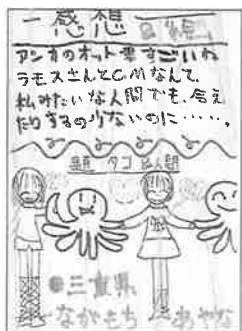 一感想
アシカのオット君すごいね
ラモスさんとCMなんて、
私みたいな人間でも、会え
たりするの少ないのに……。
題 タコと人間
三重県
ながもち あやな